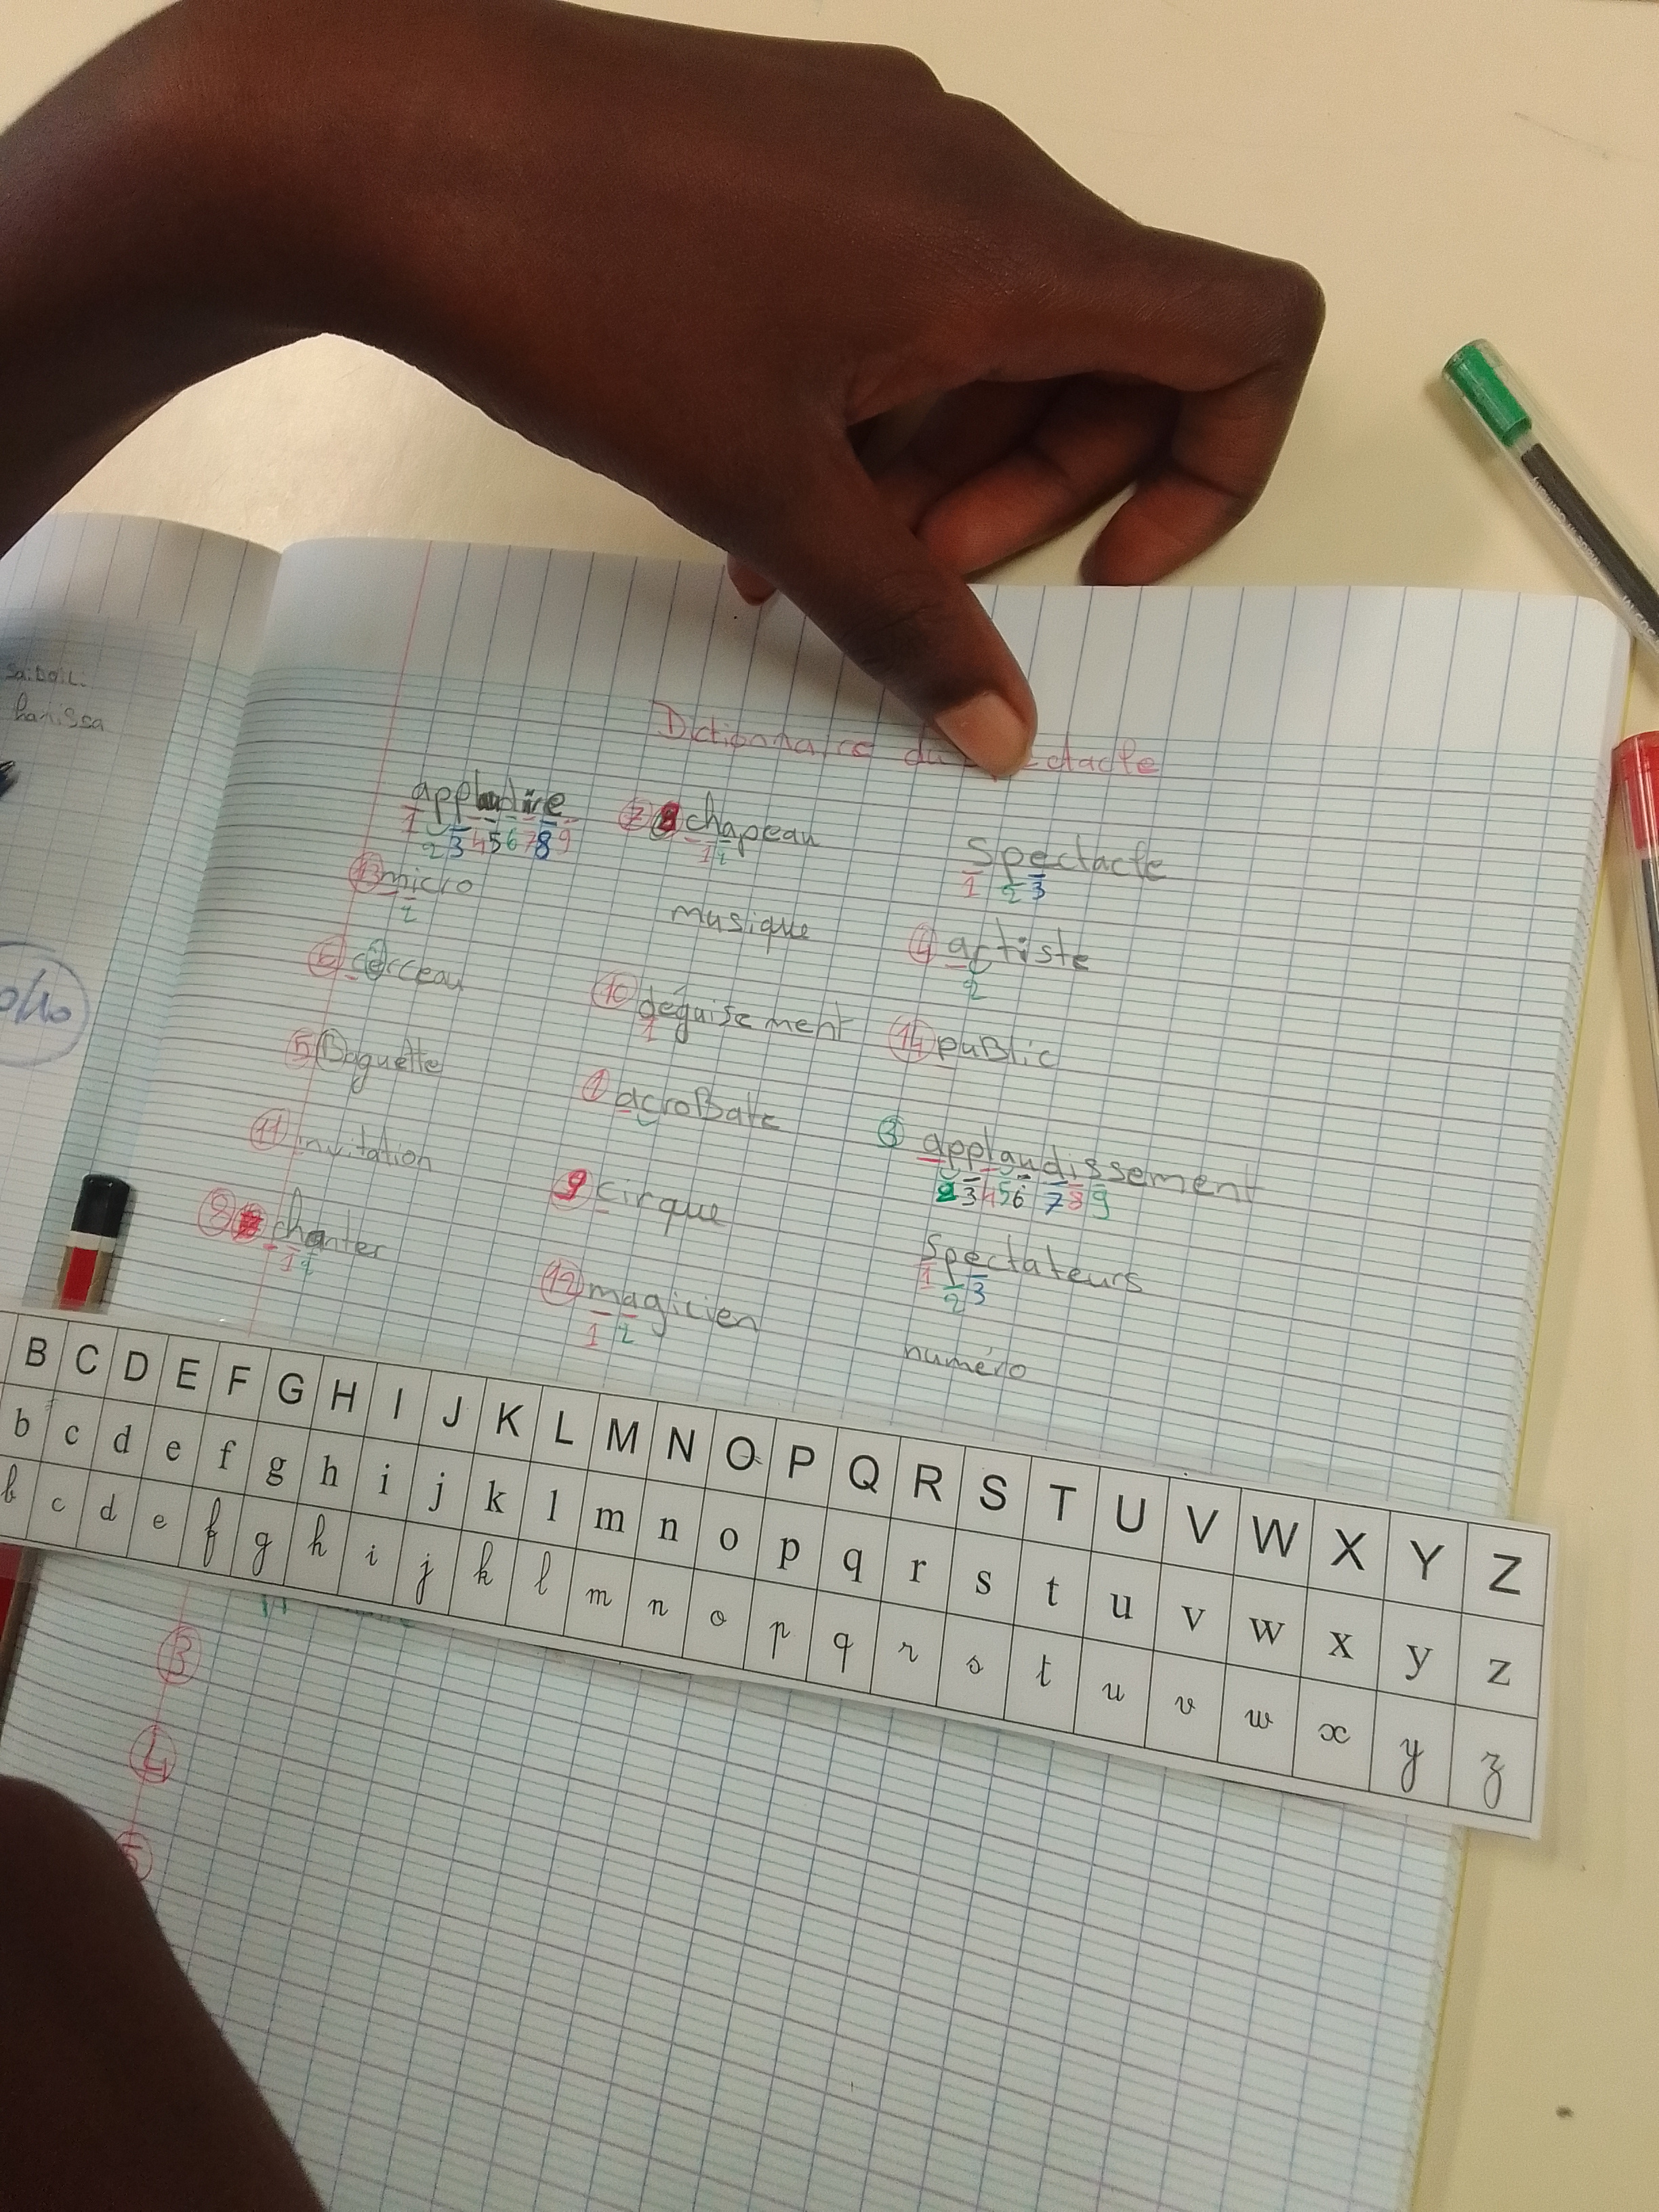 hanissa
Dictionnaire du ectacle
applaudire ⑦ chapeau spectacle
1 2 3 4 5 6 7 8 9 1 2 1 2 3
⑬ micro musique ④ artiste
2 2
⑥ cerceau ⑩ déguisement ⑭ puBlic
1
⑤ Baguette ① acroBate ③ applaudissement
2 3 4 5 6 7 8 9
⑪ invitation ⑨ cirque spectateurs
1 2 3
⑧ chanter ⑫ magicien numéro
1 2 1 2
B C D E F G H I J K L M N O P Q R S T U V W X Y Z
b c d e f g h i j k l m n o p q r s t u v w x y z
b c d e f g h i j k l m n o p q r s t u v w x y z
③
④
⑤